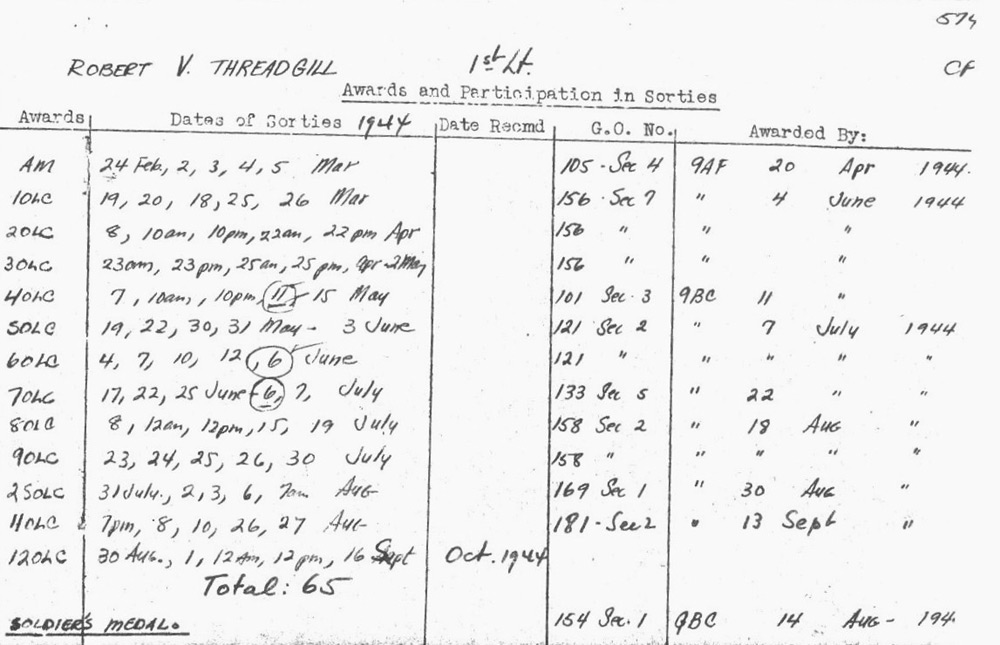 574
ROBERT V. THREADGILL 1st Lt. CF
Awards and Participation in Sorties
Awards Dates of Sorties 1944 Date Recmd G.O. No. Awarded By:
AM 24 Feb, 2, 3, 4, 5 Mar 105 - Sec 4 9AF 20 Apr 1944.
1OLC 19, 20, 18, 25, 26 Mar 156 Sec 7 " 4 June 1944
2OLC 8, 10am, 10pm, 22am, 22pm Apr 156 " " "
3OLC 23am, 23pm, 25am, 25pm, Apr - 2 May 156 " " "
4OLC 7, 10am, 10pm, 11, 15 May 101 Sec. 3 9BC 11 "
5OLC 19, 22, 30, 31 May - 3 June 121 Sec 2 " 7 July 1944
6OLC 4, 7, 10, 12, 6 June 121 " " " " "
7OLC 17, 22, 25 June - 6, 7, July 133 Sec 5 " 22 " "
8OLC 8, 12am, 12pm, 15, 19 July 158 Sec 2 " 18 Aug "
9OLC 23, 24, 25, 26, 30 July 158 " " " " "
2SOLC 31 July., 2, 3, 6, 7am Aug 169 Sec 1 " 30 Aug "
11OLC 7pm, 8, 10, 26, 27 Aug 181 - Sec 2 " 13 Sept "
12OLC 30 Aug., 1, 12Am, 12pm, 16 Sept Oct. 1944
Total: 65
SOLDIER'S MEDAL. 154 Sec. 1 9BC 14 Aug - 194.